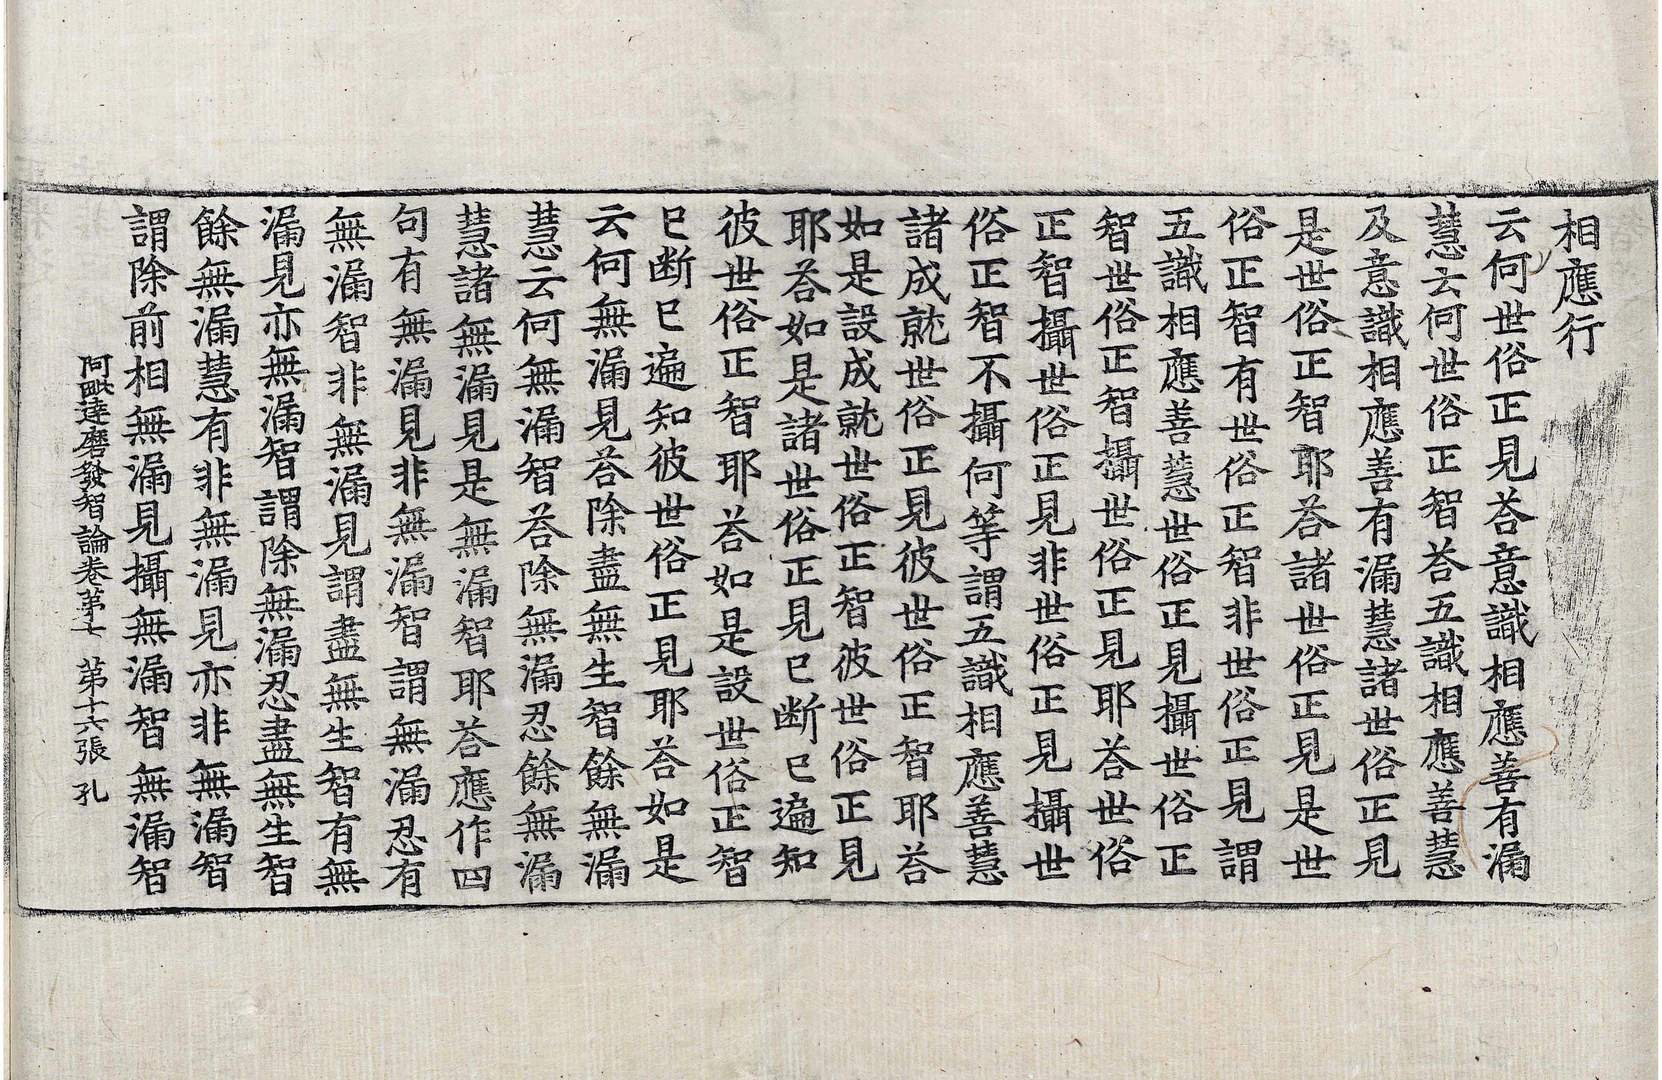 相應行
云何世俗正見荅意識相應善有漏
慧云何世俗正智荅五識相應善慧
及意識相應善有漏慧諸世俗正見
是世俗正智耶荅諸世俗正見是世
俗正智有世俗正智非世俗正見謂
五識相應善慧世俗正見攝世俗正
智世俗正智攝世俗正見耶荅世俗
正智攝世俗正見非世俗正見攝世
俗正智不攝何等謂五識相應善慧
諸成就世俗正見彼世俗正智耶荅
如是設成就世俗正智彼世俗正見
耶荅如是諸世俗正見已断已遍知
彼世俗正智耶荅如是設世俗正智
已断已遍知彼世俗正見耶荅如是
云何無漏見荅除盡無生智餘無漏
慧云何無漏智荅除無漏忍餘無漏
慧諸無漏見是無漏智耶荅應作四
句有無漏見非無漏智謂無漏忍有
無漏智非無漏見謂盡無生智有無
漏見亦無漏智謂除無漏忍盡無生智
餘無漏慧有非無漏見亦非無漏智
謂除前相無漏見攝無漏智無漏智
阿毗達磨發智論卷第七 第十六張 孔